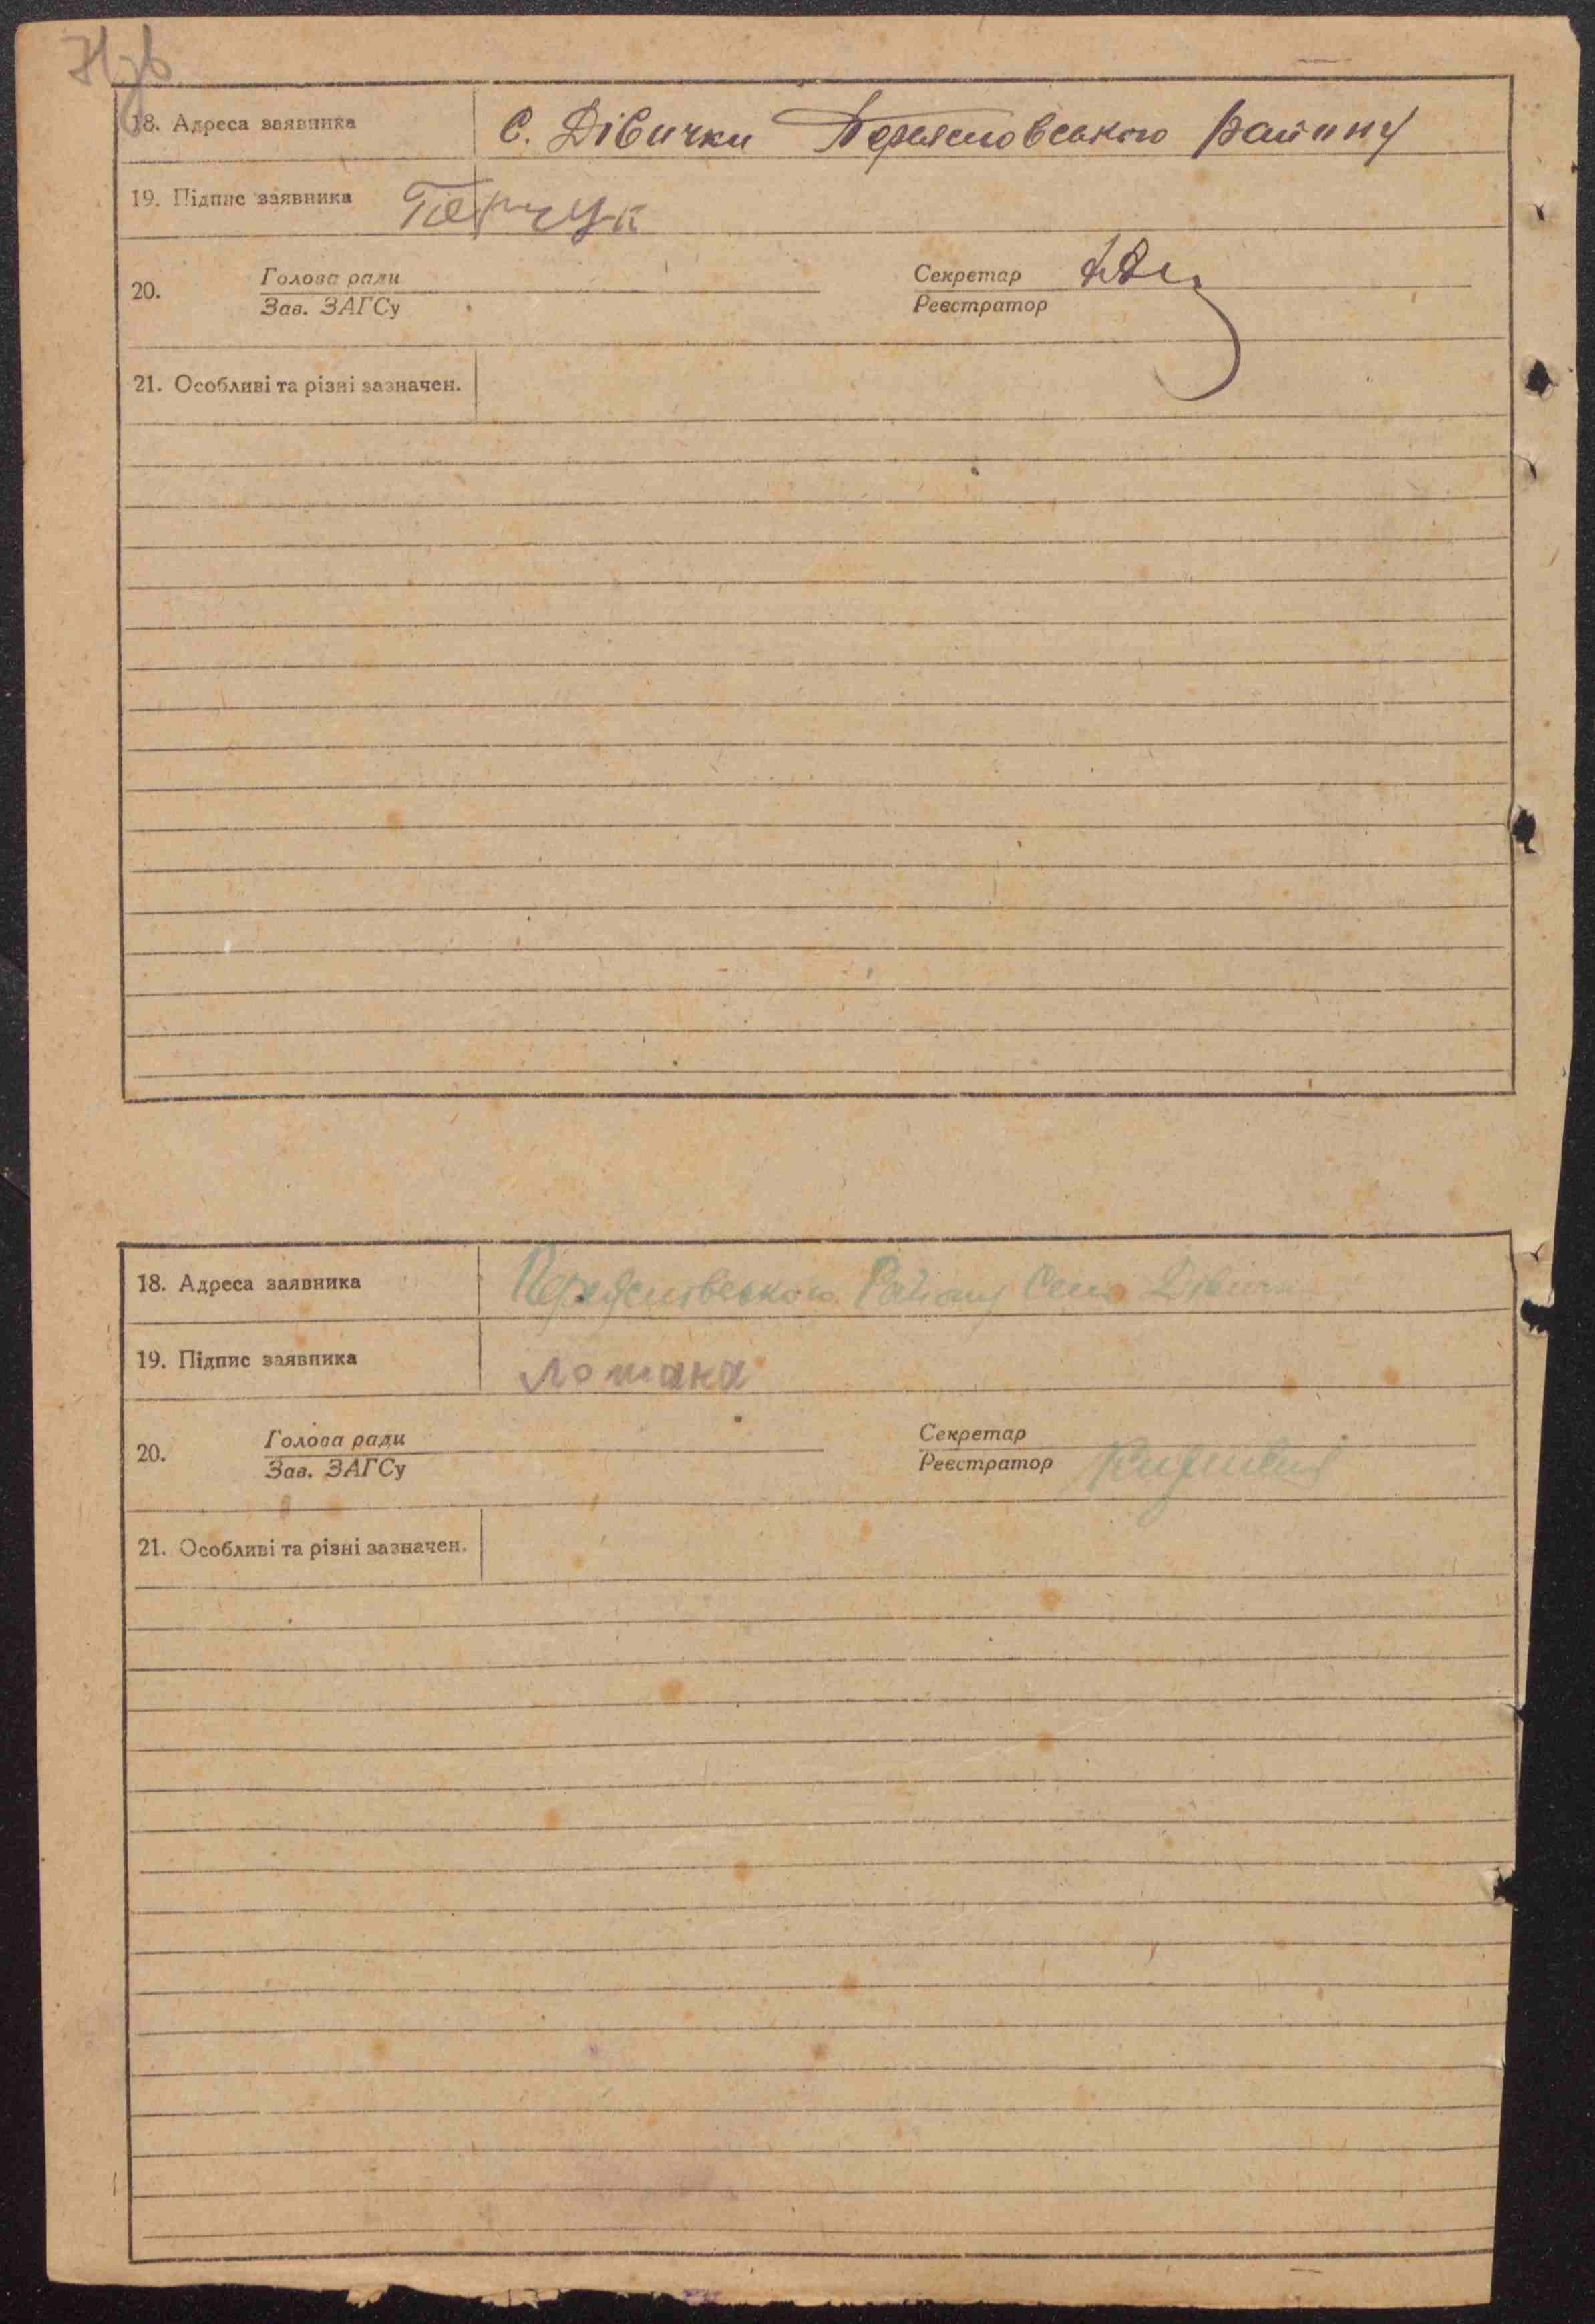 18. Адреса заявника С. Дівички Переясловського району
19. Підпис заявника
20. Голова ради Секретар
Зав. ЗАГСу Реєстратор
21. Особливі та різні зазначен.
18. Адреса заявника Переясловського Району Село Дівички
19. Підпис заявника
20. Голова ради Секретар
Зав. ЗАГСу Реєстратор
21. Особливі та різні зазначен.